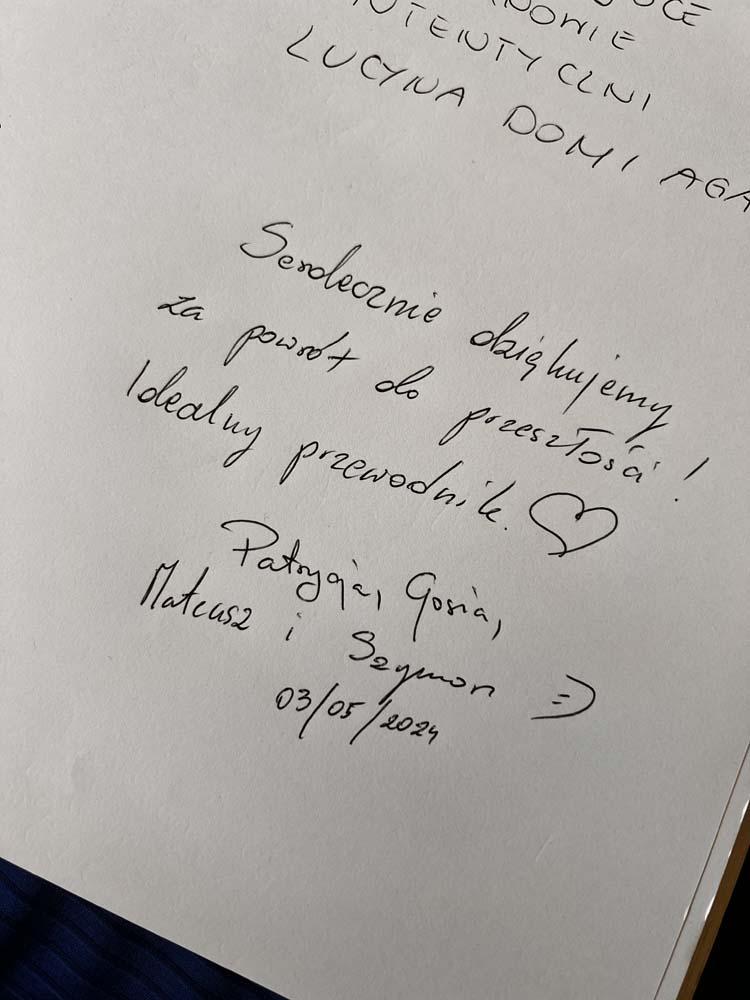 LUCYNA DOMI AGA
Serdecznie dziękujemy
za powrót do przeszłości!
Idealny przewodnik. ♡
Patrycja, Gosia,
Mateusz i Szymon =)
03/05/2024